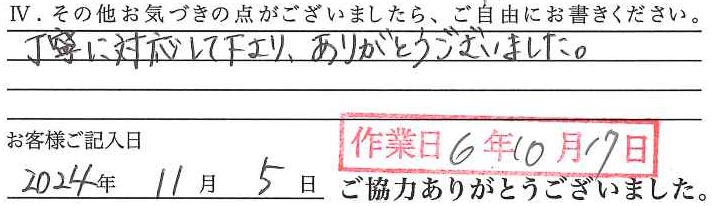 Ⅳ．その他お気づきの点がございましたら、ご自由にお書きください。
丁寧に対応して下さり、ありがとうございました。
お客様ご記入日
作業日6年10月17日
2024年 11月 5日
ご協力ありがとうございました。